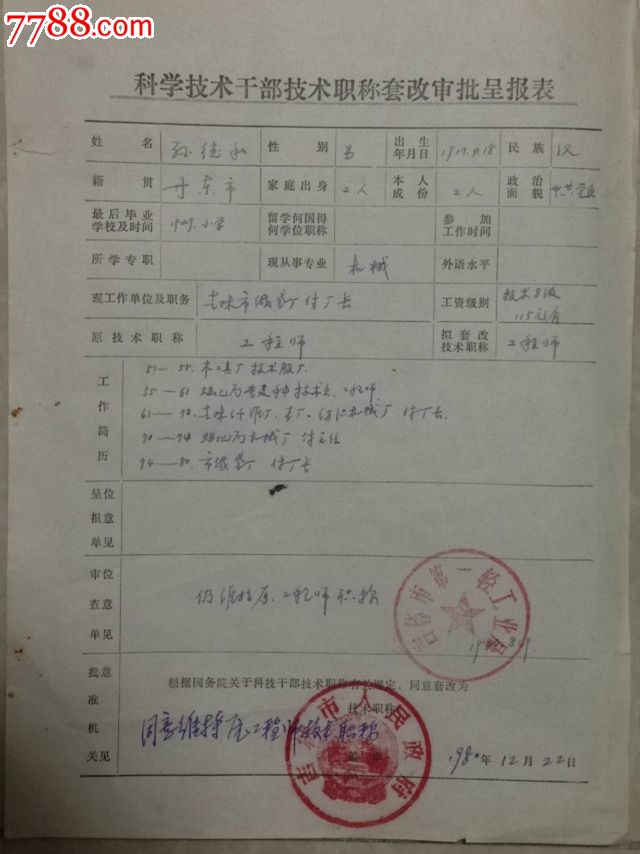 7788.com
中国收藏热线
科学技术干部技术职称套改审批呈报表
姓名 孙德 性别 男 出生年月日 1917.9.18 民族 汉
籍贯 丹东市 家庭出身 工人 本人成份 工人 政治面貌 中共党员
最后毕业学校及时间 1929.小学 留学何国得何学位职称 参加工作时间
所学专职 现从事专业 机械 外语水平
现工作单位及职务 吉林市 厂付厂长 工资级别 技术8级 115元
原技术职称 工程师 拟套改技术职称 工程师
工作简历
厂技术股
55—61 科技术员、工程师
61—70 吉林 厂、机械厂 付厂长
70—74 机械厂 付主任
74—80 市 厂 付厂长
呈报单位意见
审查单位意见 仍维持原工程师职称
吉林市第一轻工业局
批准机关意见
根据国务院关于科技干部技术职称有关规定,同意套改为
技术职称
同意维持原工程师技术职称
吉林市人民政府
1980年12月22日